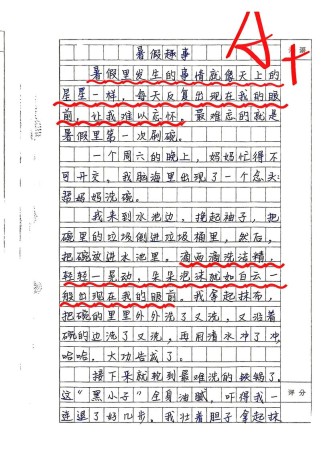 A+
暑假趣事
暑假里发生的事情就像天上的
星星一样，每天反复出现在我的眼
前，让我难以忘怀。最难忘的就是
暑假里第一次刷碗。
一个周六的晚上，妈妈忙得不
可开交。我脑海里出现了一个念头
帮妈妈洗碗。
我来到水池边，挽起袖子，把
碗里的垃圾倒进垃圾桶里，然后，
把碗放进水池里，滴两滴洗洁精，
轻轻一晃动，朵朵泡沫就如白云一
般出现在我的眼前。我拿起抹布，
把碗的里里外外洗了又洗，又沿着
碗的边洗了又洗，再用清水冲了冲，
哈哈，大功告成了。
接下来就轮到最难洗的铁锅了，
这“黑小子”全身油腻，吓得我一
连退了好几步。我壮着胆子拿起抹
评分